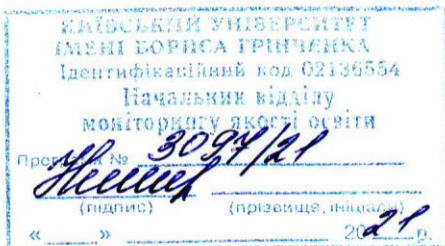 КИЇВСЬКИЙ УНІВЕРСИТЕТ
ІМЕНІ БОРИСА ГРІНЧЕНКА
Ідентифікаційний код 02136554
Начальник відділу
моніторингу якості освіти
Програма № 3097/21
(підпис) (прізвище, ініціали)
« » 2021 р.